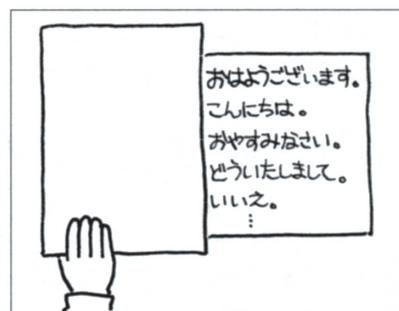 おはようございます。
こんにちは。
おやすみなさい。
どういたしまして。
いいえ。
⋮